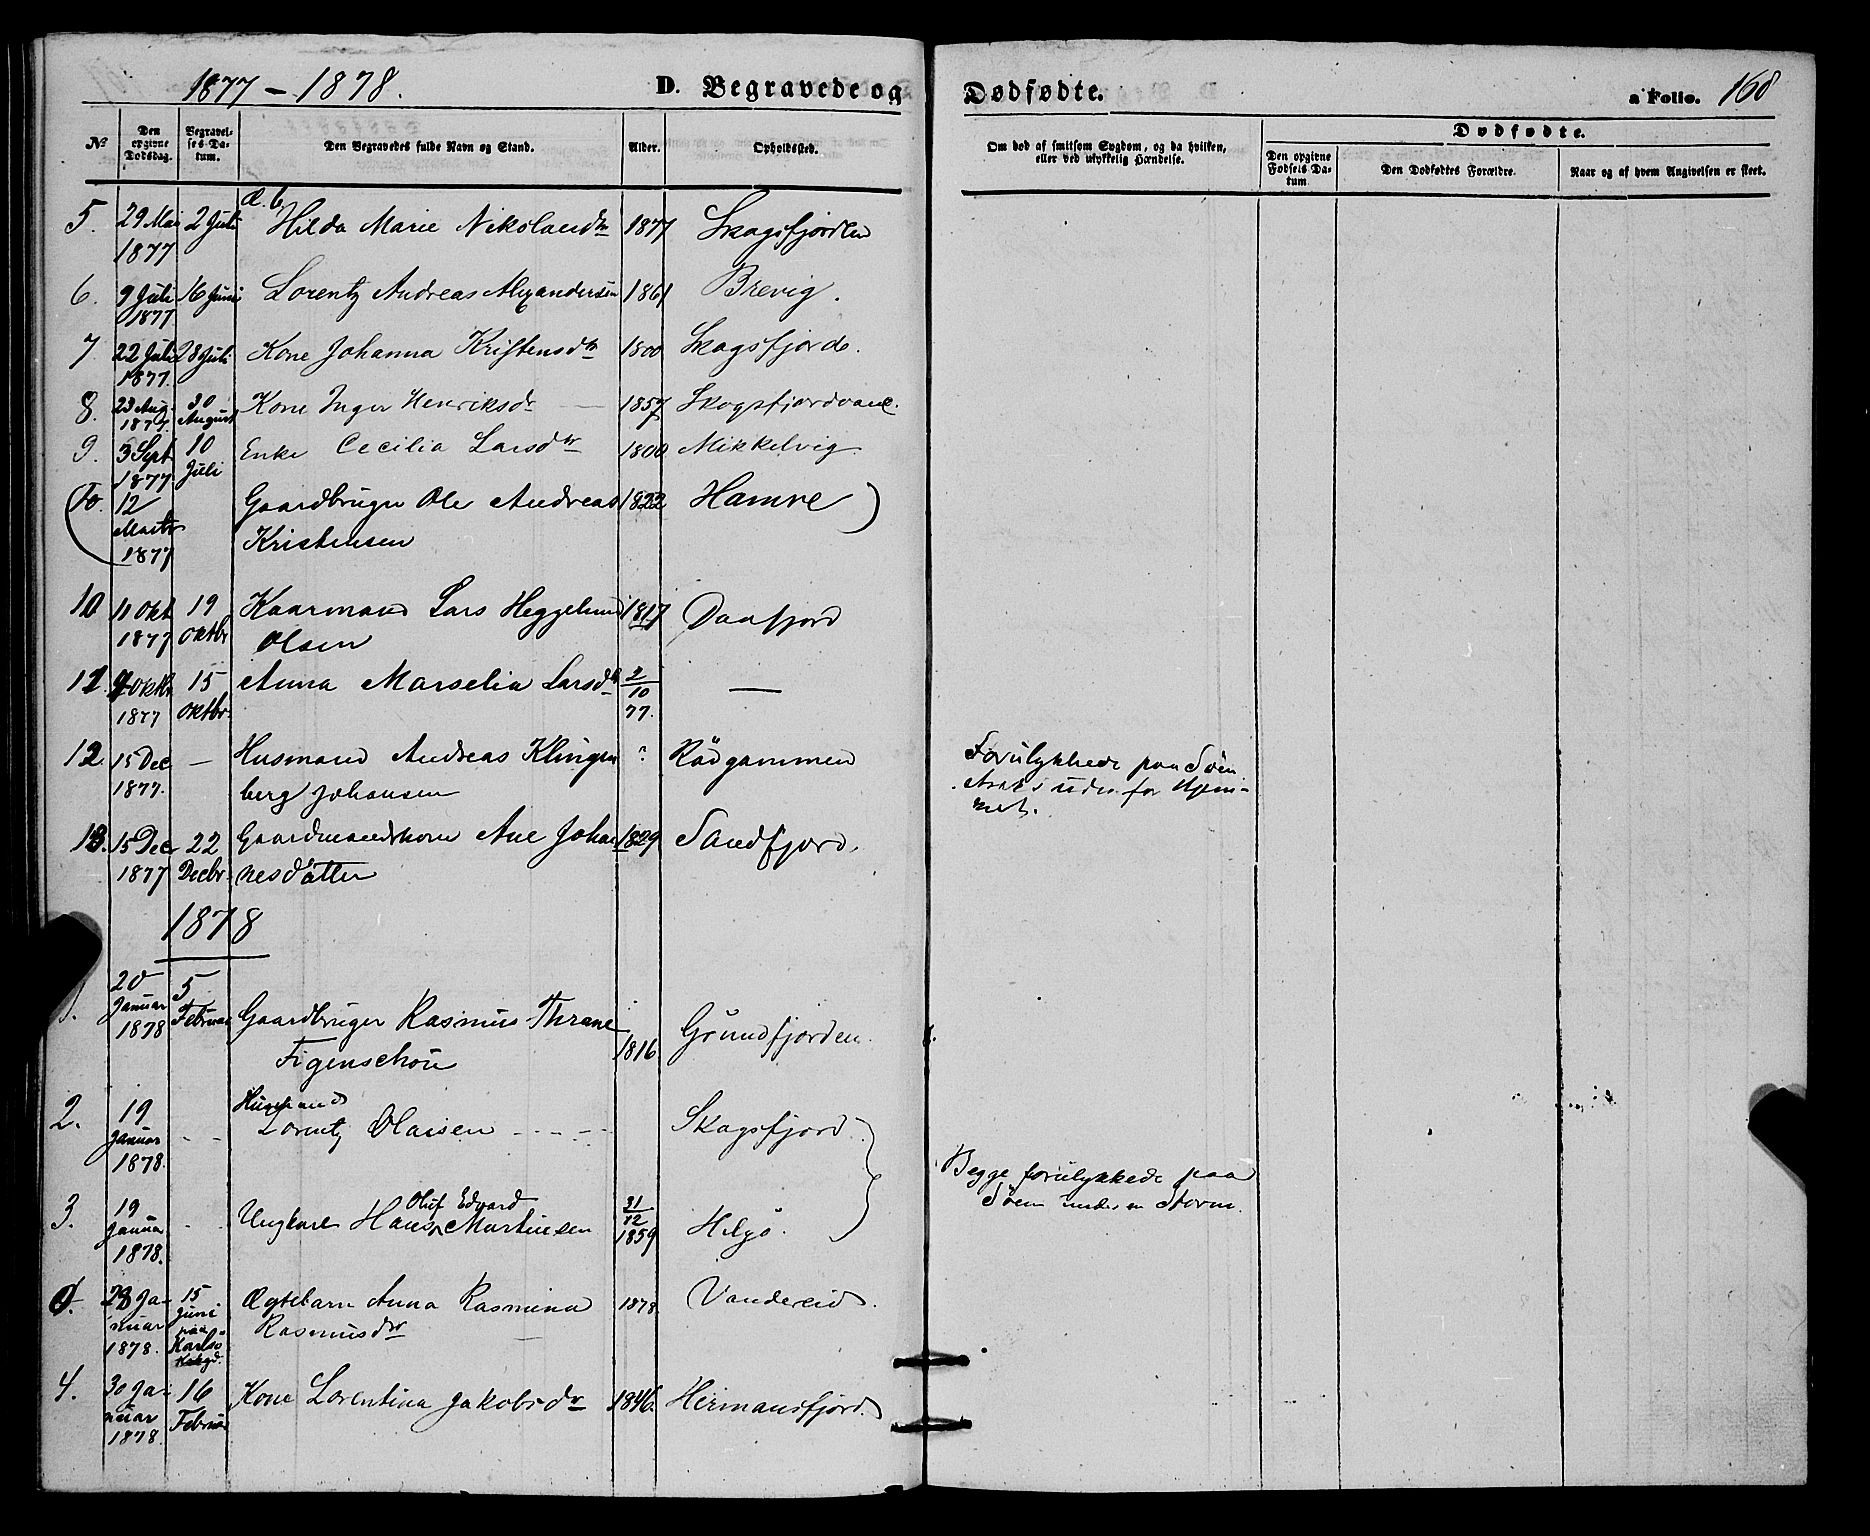 1877 – 1878. D. Begravede og Dødfødte. a Folio. 168
Nº
Den opgivne Dødsdag.
Begravelses-Datum.
Den Begravedes fulde Navn og Stand.
Alder.
Opholdssted.
Om død af smitsom Sygdom, og da hvilken, eller ved ulykkelig Hændelse.
Dødfødte.
Den opgivne Fødsels Datum.
Den Dødfødtes Forældre.
Naar og af hvem Angivelsen er skeet.
5. 29 Mai 1877 2 Juli Æ. b. Hilda Marie Nikolausdtr 1877 Skogsfjorden
6. 9 Juli 1877 16 Juni Lorentz Andreas Alexandersen 1861 Brevig.
7 22 Juli 1877. 28 Juli Kone Johanna Kristensdtr 1800 Skogsfjord.
8. 23 Aug. 1877. 30 August Kone Inger Henriksdr — 1857 Skogsfjordvand.
9. 3 Sept 1877 10 Juli Enke Cecilia Larsdtr 1800 Mikkelvig
(10. 12 Marts 1877 Gaardbruger Ole Andreas 1822 Hamre )
Kristensen
10 11 Okt 1877 19 Oktbr Kaarmand Lars Heggelund 1817 Daafjord
Olsen
11. 9 Oktbr 1877 15 Oktbr. Anna Marselia Larsdtr 2/10 77. —
12. 15 Dec 1877. — Husmand Andreas Klingen ? Rödgammen
berg Johansen
Forulykkede paa Söen
. straks uden for Hjem-
met.
13. 15 Dec 1877 22 Decbr. Gaardmandskone Ane Johan 1829 Sandfjord.
nesdatter
1878
1. 20 Januar 1878 5 Februar Gaardbruger Rasmus Thrane 1816 Grundfjorden.
Figenschou
2. 19 Januar 1878. - - Husmand Lorentz Olaisen - - - - - Skogsfjord.
Begge forulykkede paa
Söen under en Storm.
3. 19 Januar 1878. - - Ungkarl Hans Oluf Edvard Martinsen 31/12 1859 Helgö.
28 Januar 1878. 15 Juni paa Karlsö Kirkegd. Ægtebarn Anna Rasmina 1878. Vandereid.
Rasmusdtr —
4. 30 Januar 1878. 16 Februar Kone Lorentina Jakobsdr 1846. Hermansfjord.